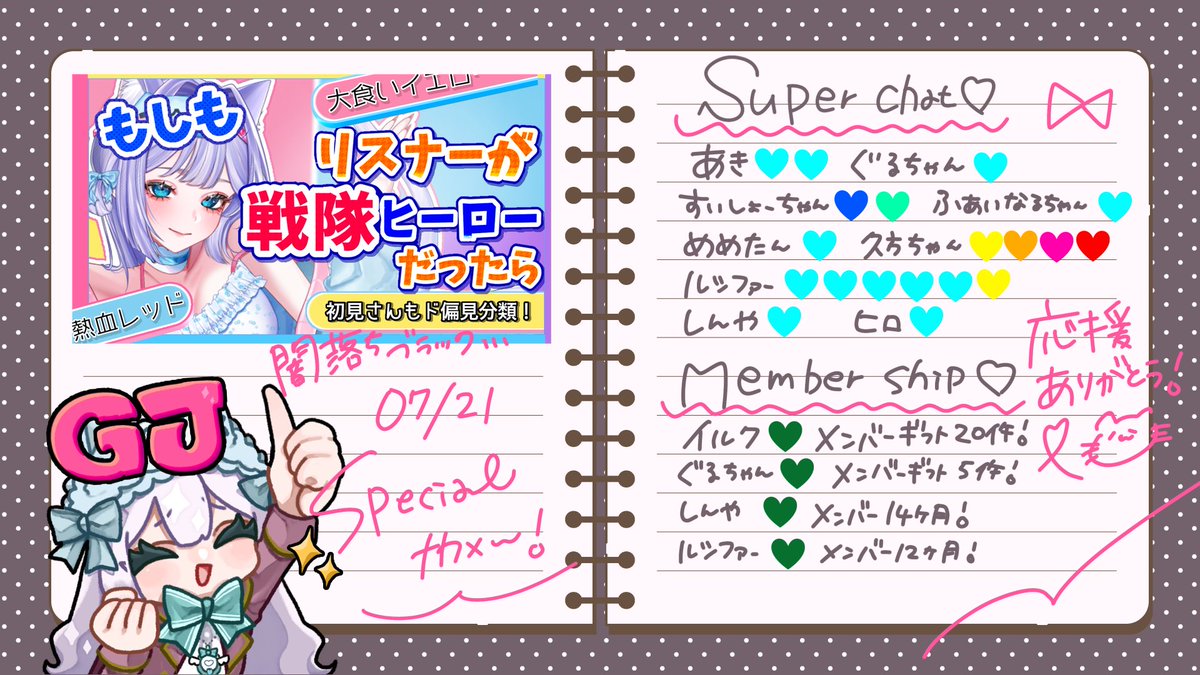 大食いイエロー
もしも
リスナーが
戦隊ヒーロー
だったら
熱血レッド
初見さんもド偏見分類！
闇落ちブラック...
07/21
Special
thx~!
GJ
Super chat♡
あき ぐるちゃん
すいしょーちゃん ふあいなるちゃん
めめたん 久ちちゃん
ルシファー
しんや ヒロ
応援
ありがとう!
Member ship♡
イルク メンバーギフト20件!
ぐるちゃん メンバーギフト5件!
しんや メンバー14ヶ月!
ルシファー メンバー12ヶ月!